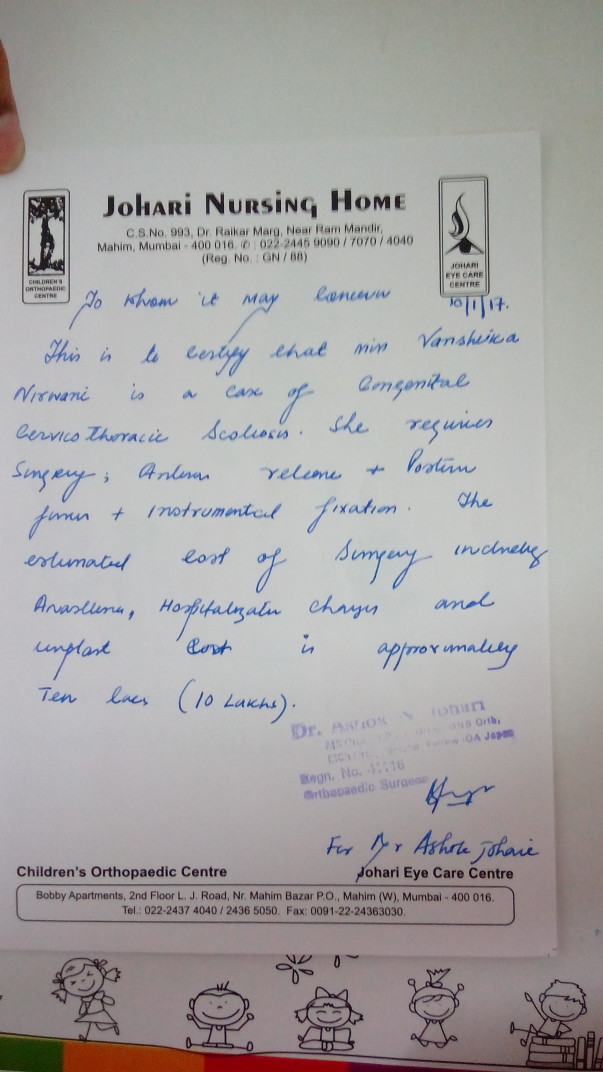 Johari Nursing Home
C.S.No. 993, Dr. Raikar Marg, Near Ram Mandir,
Mahim, Mumbai - 400 016. ✆ : 022-2445 9090 / 7070 / 4040
(Reg. No. : GN / 88)
CHILDREN'S
ORTHOPAEDIC
CENTRE
JOHARI
EYE CARE
CENTRE
To whom it may concern
10/1/17.
This is to certify that miss Vanshika
Nirwani is a case of Congenital
Cervico Thoracic Scoliosis. She requires
Surgery; Anterior release + Posterior
fusion + Instrumented fixation. The
estimated cost of Surgery including
Anaesthesia, Hospitalization charges and
implant cost is approximately
Ten lacs (10 Lakhs).
Dr. Ashok N Johari
Orth,
IOA Japan
Regn. No.
Orthopaedic Surgeon
For Dr Ashok Johari
Children's Orthopaedic Centre
Johari Eye Care Centre
Bobby Apartments, 2nd Floor L. J. Road, Nr. Mahim Bazar P.O., Mahim (W), Mumbai - 400 016.
Tel.: 022-2437 4040 / 2436 5050. Fax: 0091-22-24363030.